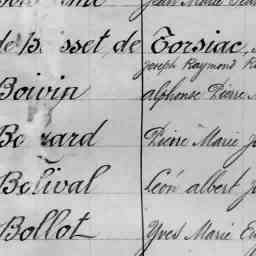 de B sset de Torsiac,
Joseph Raymond
Boivin Alphonse Pierre
Bo ard Pierre Marie
Bolival Léon albert
Bollot Yves Marie